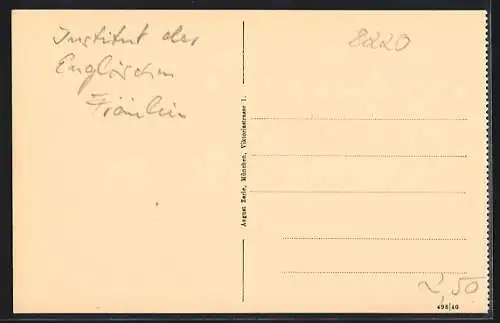 Institut der
Englischen
Fräulein
8220
August Zerle, München, Viktoriastrasse 1.
2,50
495/40